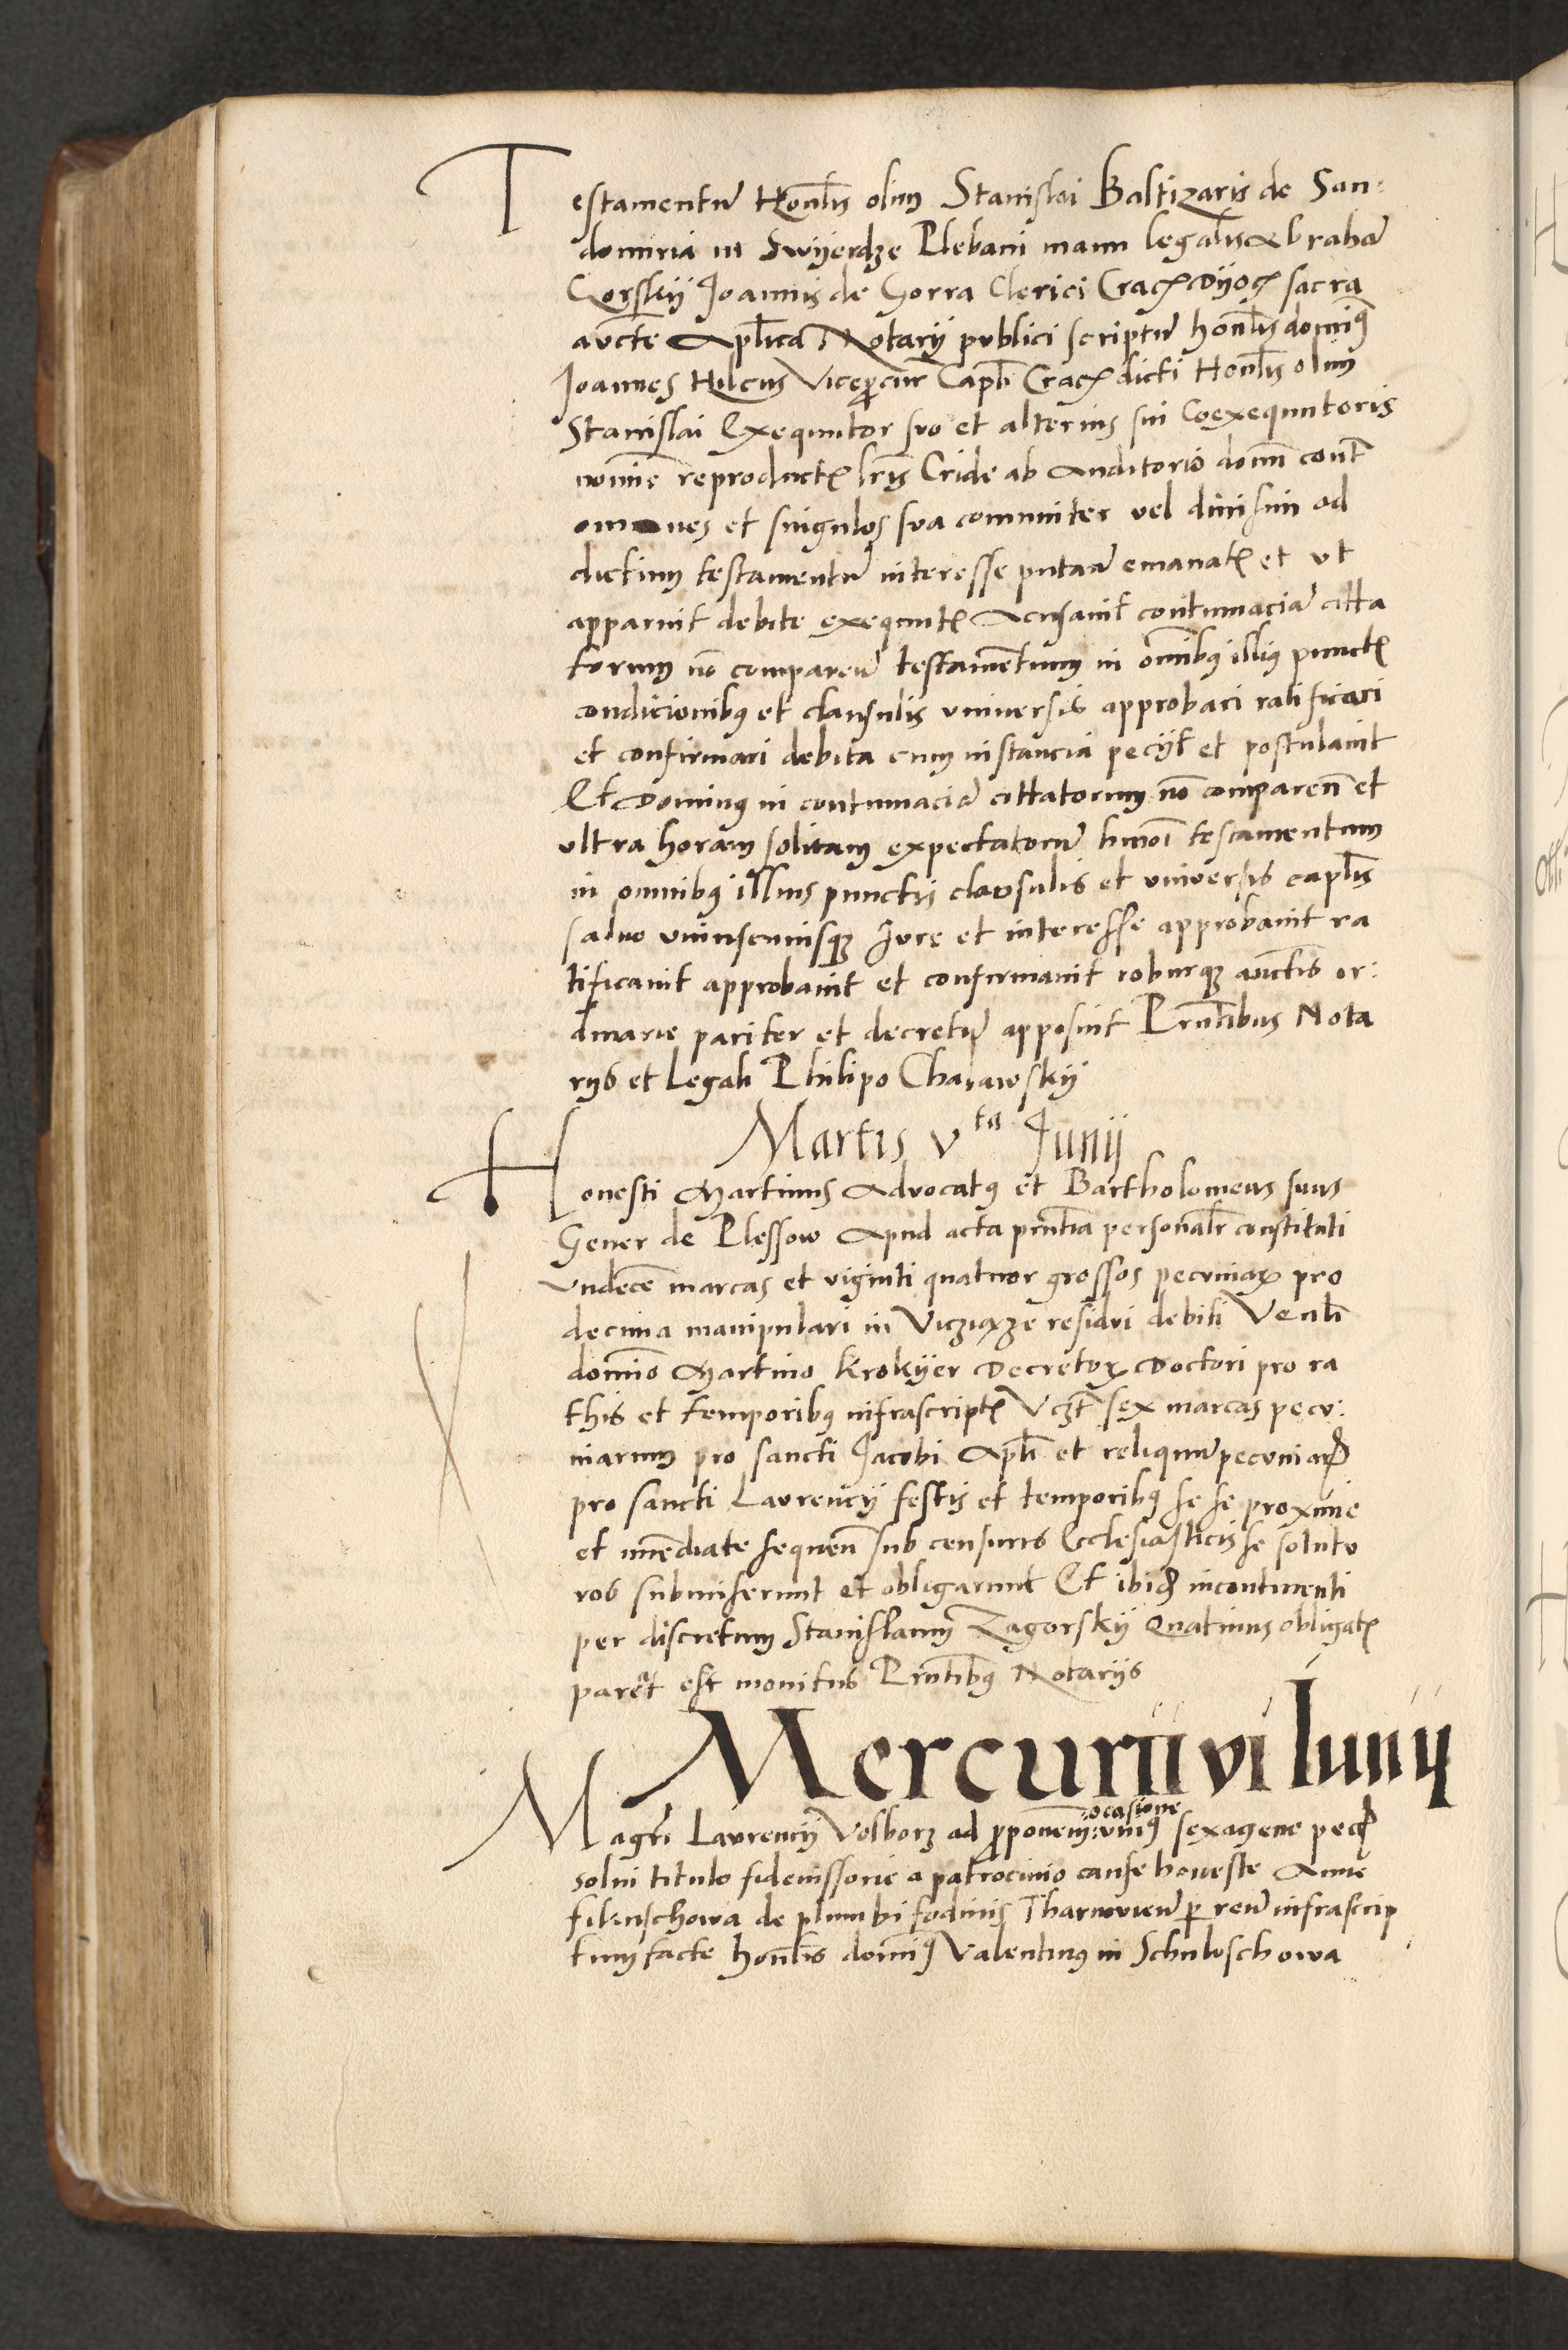 Testamentū Honlis olim Stanislai Baltizaris de San:
domiria in Swyerdze Plebani manu legalis Abrahā
Gorskij Joannis de Gorra Clerici Crac Dyoc sacra
aucte Aplica Notarij publici scriptū honlis domin9
Joannes Hilcus Viceprcur Capli Crac dicti Honlis olim
Stanislai Exequutor suo et alterius sui Coexequutoris
nomine reproduct lris Cride ab Auditorio domi cont
omnes et singulos sua comuniter vel diuisim ad
dictum testamentū interesse putan emanat et vt
apparuit debite exequut Acusauit contumaciā citta
torum nō comparen testamentum in omnib9 illi9 punct
condicionib9 et clausulis vniuersis approbari ratificari
et confirmari debita cum instancia pecijt et postulauit
Et Domin9 in contumaciā cittatorum nō comparen et
vltra horam solitam expectatorū hmoi testamentum
in omnib9 illius punctis clausulis et vniuersis caplis
saluo vniuscuiusq3 Jure et interesse approbauit ra
tificauit approbauit et confirmauit roburq3 auctis or:
dinarie pariter et decretū apposuit Pntibus Nota
rijs et Legali Philipo Charawskij
Martis vta Junij
Honesti Martinus Advocat9 et Bartholomeus suus
Gener de Plessow Apud acta pntia personalr constituti
Vndecē marcas et viginti quatuor grossos pecuniar pro
decima manipulari in Viczιąze residui debiti Venli
domino Martino Krokyer Decretor Doctori pro ra
this et temporib9 infrascript Vczt sex marcas pecu:
niarum pro sancti Jacobi Apli et reliquum pecuniar
pro sancti Laurencij festis et temporib9 se se proxime
et imediate sequen sub censuris Ecclesiasticis se soluto
ros submiserunt et obligarunt Et ibid incontinenti
per discretum Stanislaum Zagorskij Quatinus obligat
paret est monitus Pntib9 Notarijs
Mercurii vi Iunij
Magri Laurencij Volborz ad proponem :ocasione vni9 sexagene pec
solui titulo fideiussorie a patrocinio cause honeste Anne
filkuschowa de plumbi fodinis Tharnouien p reū infrascrip
tum facte honlis domin9 Valentin9 in Schuloschowa